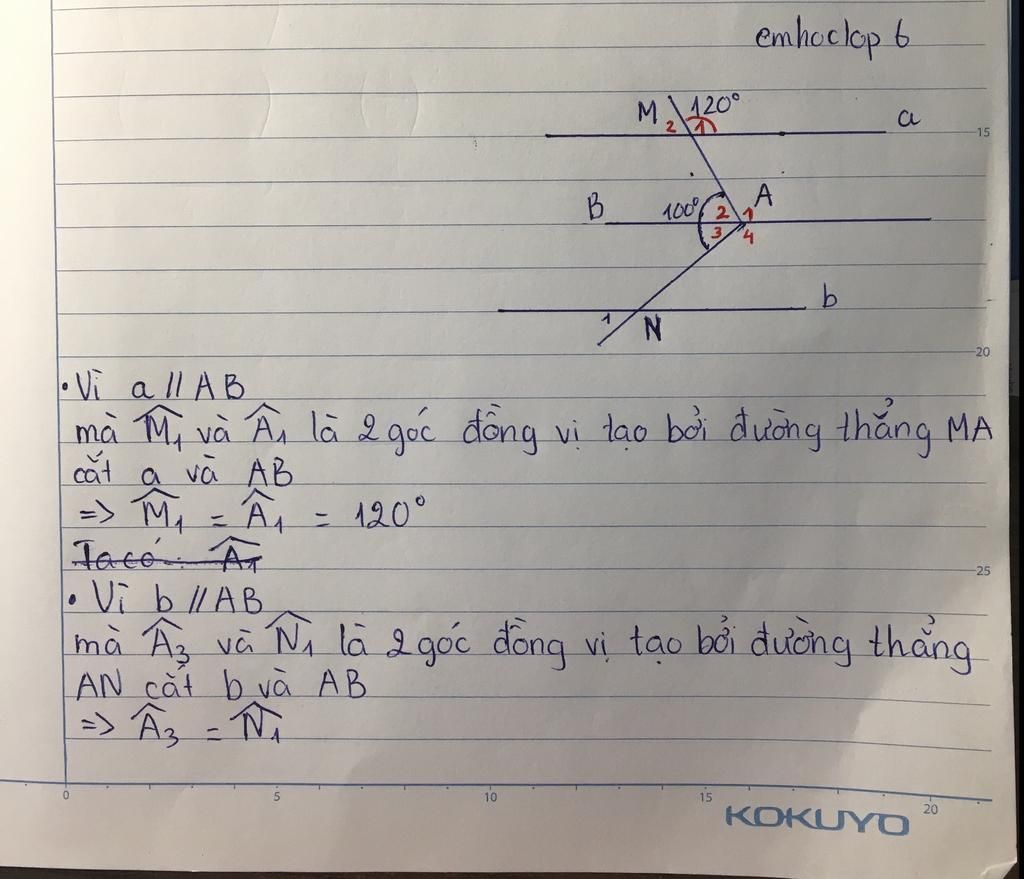 emhoclop 6
M 120° a
2 1
15
B 100° A
2 1
3 4
b
1 N
20
• Vì a // AB
mà M̂₁ và Â₁ là 2 góc đồng vị tạo bởi đường thẳng MA
cắt a và AB
=> M̂₁ = Â₁ = 120°
Ta có: Â₁
25
• Vì b // AB
mà Â₃ và N̂₁ là 2 góc đồng vị tạo bởi đường thẳng
AN cắt b và AB
=> Â₃ = N̂₁
0 5 10 15 20
KOKUYO